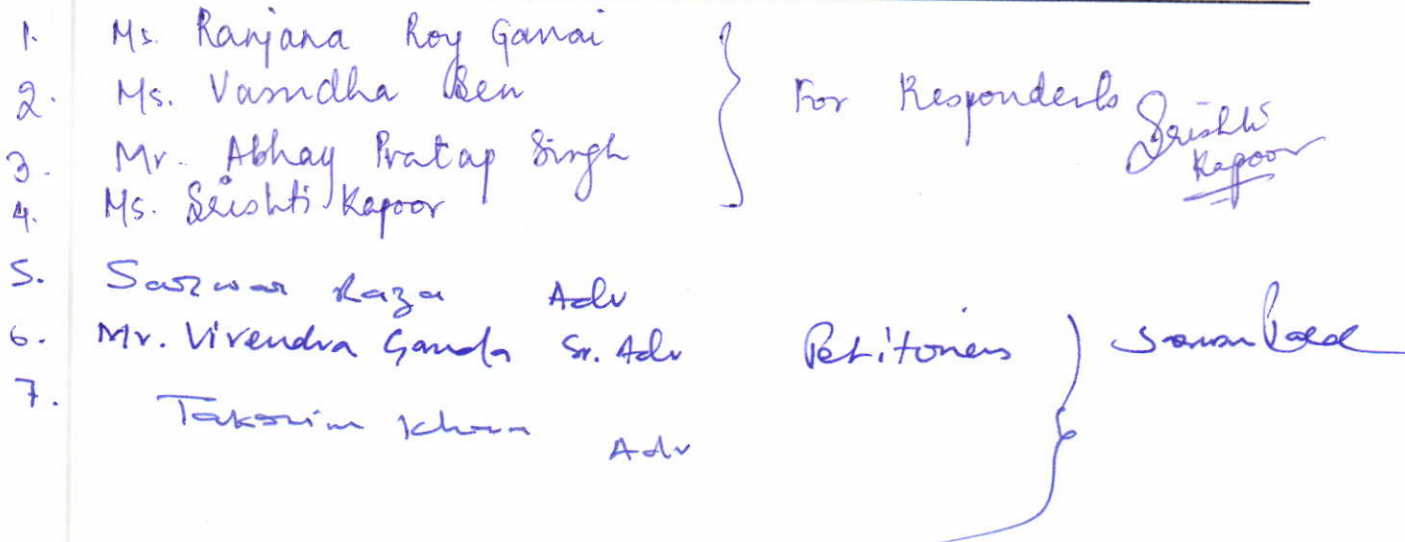 1. Ms. Ranjana Roy Gawai
2. Ms. Vasudha Sen
3. Mr. Abhay Pratap Singh
4. Ms. Srishti Kapoor
For Respondents
Srishti
Kapoor
5. Sarwar Raza Adv
6. Mr. Virendra Ganda Sr. Adv Petitoners
7. Khan Adv